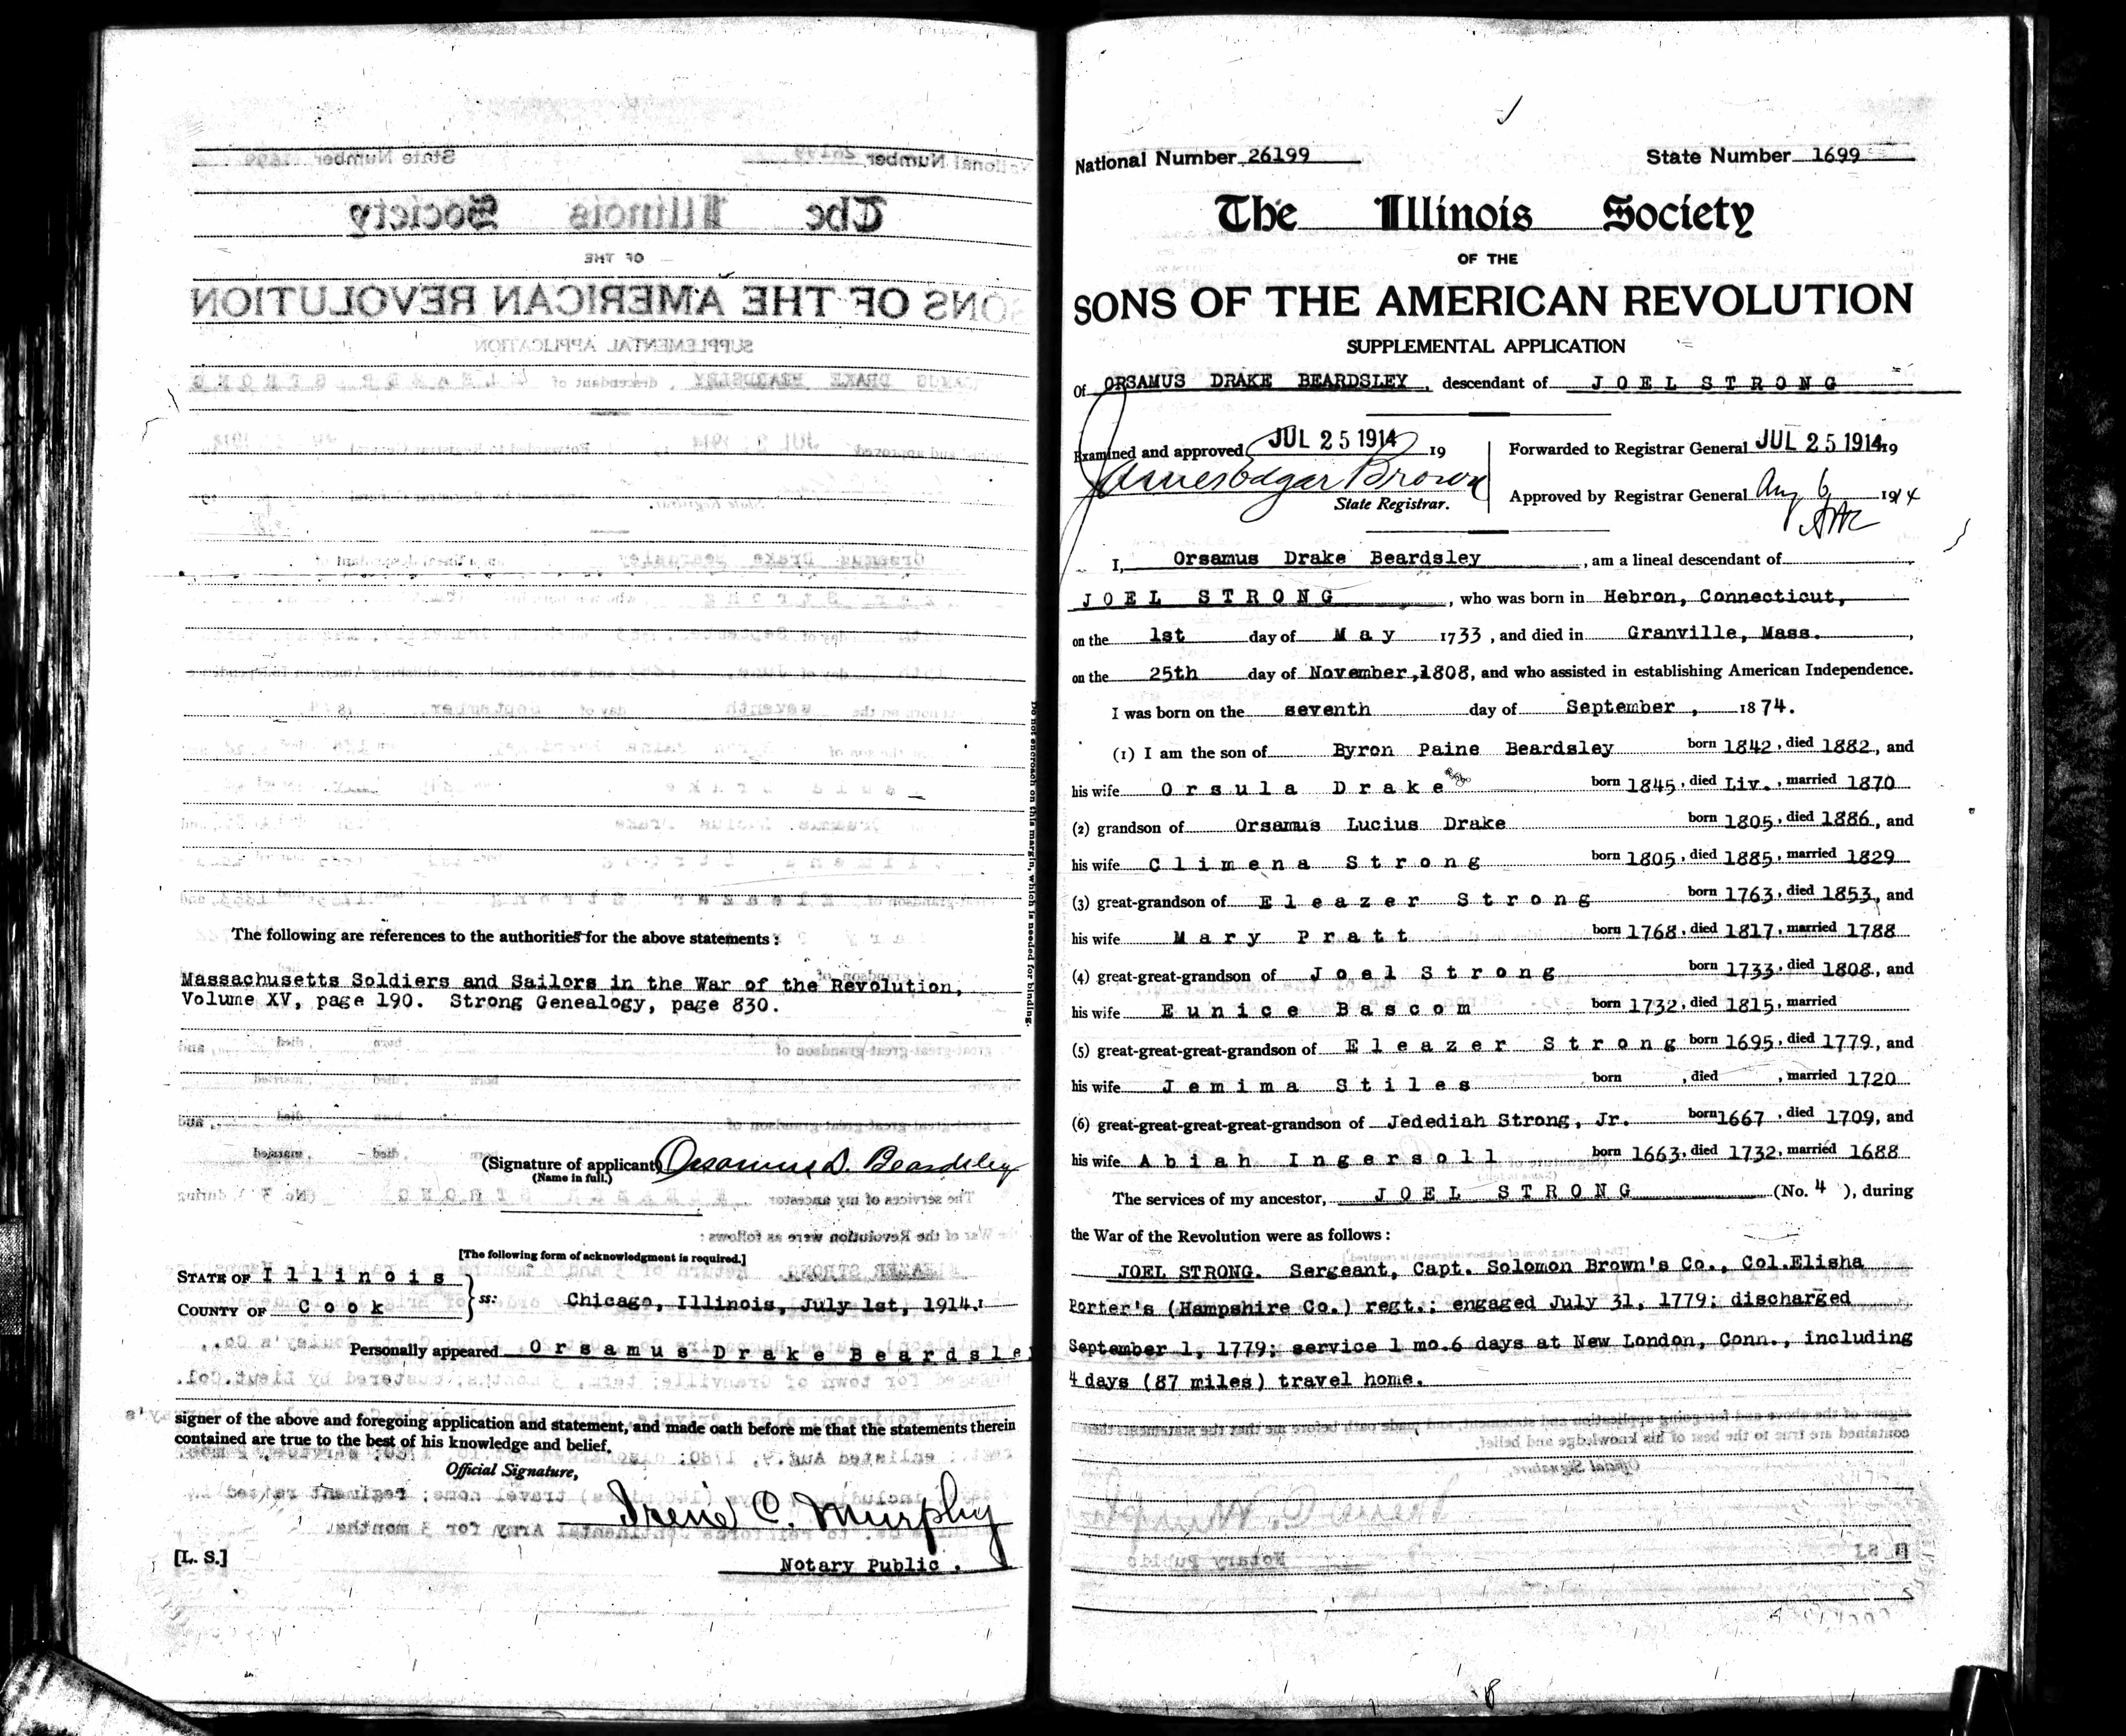 The following are references to the authorities for the above statements:
Massachusetts Soldiers and Sailors in the War of the Revolution,
Volume XV, page 190. Strong Genealogy, page 830.
(Signature of applicant) Orsamus D. Beardsley
(Name in full.)
[The following form of acknowledgment is required.]
STATE OF Illinois
COUNTY OF Cook } ss: Chicago, Illinois, July 1st, 1914.
Personally appeared Orsamus Drake Beardsley
signer of the above and foregoing application and statement, and made oath before me that the statements therein
contained are true to the best of his knowledge and belief.
Official Signature,
Irene C. Murphy
[L. S.]
Notary Public.
Do not encroach on this margin, which is needed for binding.
National Number 26199 State Number 1699
The Illinois Society
OF THE
SONS OF THE AMERICAN REVOLUTION
SUPPLEMENTAL APPLICATION
Of ORSAMUS DRAKE BEARDSLEY, descendant of JOEL STRONG
Examined and approved JUL 25 1914 19
James Edgar Brown
State Registrar.
Forwarded to Registrar General JUL 25 1914 19
Approved by Registrar General Aug 6 1914
I, Orsamus Drake Beardsley, am a lineal descendant of
JOEL STRONG, who was born in Hebron, Connecticut,
on the 1st day of May 1733, and died in Granville, Mass.,
on the 25th day of November, 1808, and who assisted in establishing American Independence.
I was born on the seventh day of September, 1874.
(1) I am the son of Byron Paine Beardsley born 1842, died 1882, and
his wife Orsula Drake born 1845, died Liv., married 1870
(2) grandson of Orsamus Lucius Drake born 1805, died 1886, and
his wife Climena Strong born 1805, died 1885, married 1829
(3) great-grandson of Eleazer Strong born 1763, died 1853, and
his wife Mary Pratt born 1768, died 1817, married 1788
(4) great-great-grandson of Joel Strong born 1733, died 1808, and
his wife Eunice Bascom born 1732, died 1815, married
(5) great-great-great-grandson of Eleazer Strong born 1695, died 1779, and
his wife Jemima Stiles born , died , married 1720
(6) great-great-great-great-grandson of Jedediah Strong, Jr. born 1667, died 1709, and
his wife Abiah Ingersoll born 1663, died 1732, married 1688
The services of my ancestor, JOEL STRONG (No. 4 ), during
the War of the Revolution were as follows:
JOEL STRONG. Sergeant, Capt. Solomon Brown's Co., Col.Elisha
Porter's (Hampshire Co.) regt.; engaged July 31, 1779; discharged
September 1, 1779; service 1 mo.6 days at New London, Conn., including
4 days (87 miles) travel home.